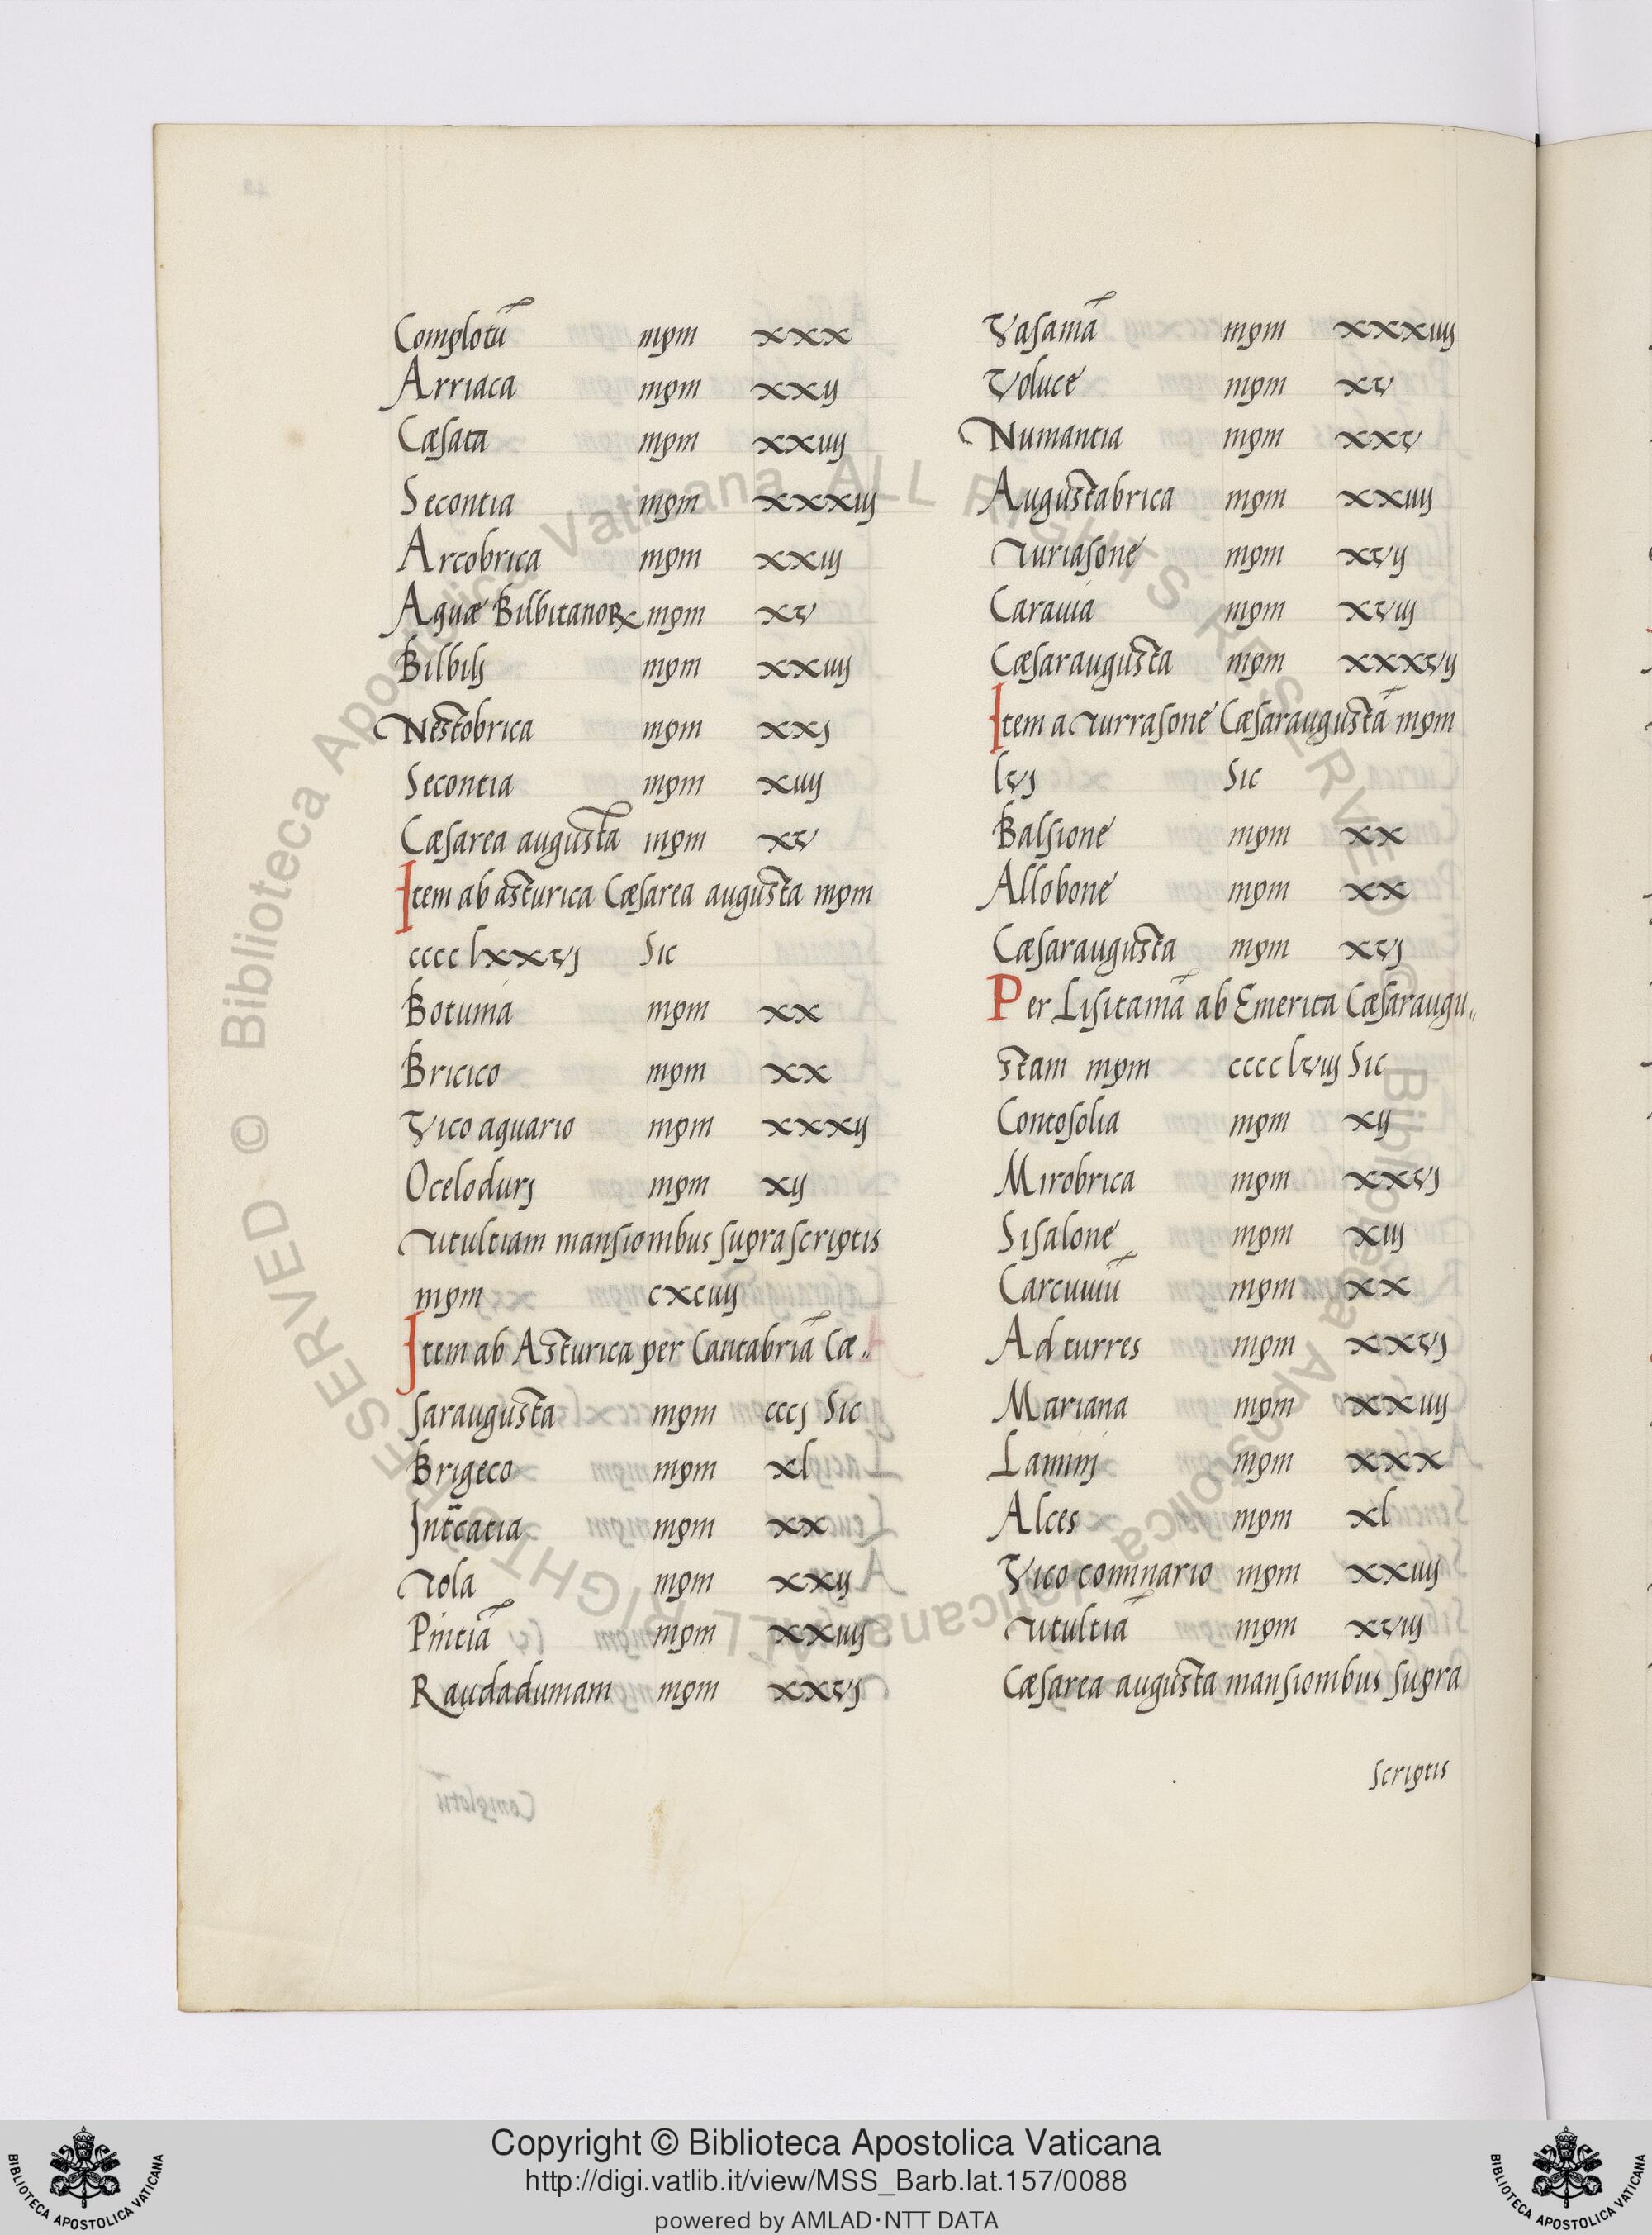 Complotū mpm xxx
Arriaca mpm xxij
Cæsata mpm xxiiij
Secontia mpm xxxiij
Arcobrica mpm xxiij
Aquæ Bilbitanoꝝ mpm xv
Bilbilj mpm xxiiij
Nestobrica mpm xxj
Secontia mpm xiiij
Cæsarea augusta mpm xv
Item ab asturica Cæsarea augusta mpm
cccc lxxvj Sic
Botunia mpm xx
Bricico mpm xx
Vico aquario mpm xxxij
Ocelodurj mpm xij
Titultiam mansionibus suprascriptis
mpm cxciiij
Item ab Asturica per Cantabriā Cæ„
saraugusta mpm cccj Sic
Brigeco mpm xl
Intcatia mpm xx
Tola mpm xxij
Pintiā mpm xxiiij
Raudadumam mpm xxvj
Vasamā mpm xxxiiij
Voluce mpm xv
Numantia mpm xxv
Augustabrica mpm xxiiij
Turiasone mpm xvij
Carauia mpm xviij
Cæsaraugusta mpm xxxvij
Item a Turrasone Cæsaraugustā mpm
lvj Sic
Balsione mpm xx
Allobone mpm xx
Cæsaraugusta mpm xvj
Per Lisitaniā ab Emerita Cæsaraugu„
stam mpm cccc lviij Sic
Contosolia mpm xij
Mirobrica mpm xxvj
Sisalone mpm xiij
Carcuuiū mpm xx
Ad turres mpm xxvj
Mariana mpm xxiiij
Laminj mpm xxx
Alces mpm xl
Vico cominario mpm xxiiij
Titultiā mpm xviij
Cæsarea augusta mansionibus supra
scriptis
Copyright © Biblioteca Apostolica Vaticana
http://digi.vatlib.it/view/MSS_Barb.lat.157/0088
powered by AMLAD·NTT DATA
BIBLIOTECA APOSTOLICA VATICANA
BIBLIOTECA APOSTOLICA VATICANA
© Biblioteca Apostolica Vaticana ALL RIGHTS RESERVED
© Biblioteca Apostolica Vaticana ALL RIGHTS RESERVED